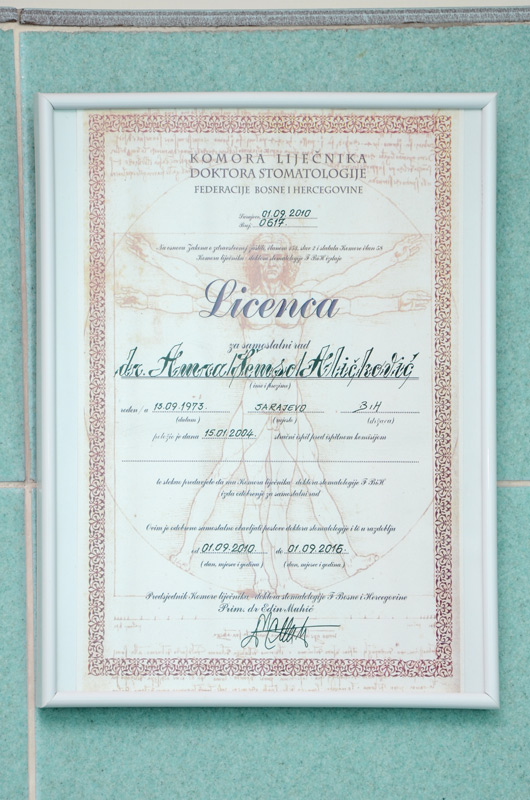 KOMORA LIJEČNIKA
DOKTORA STOMATOLOGIJE
FEDERACIJE BOSNE I HERCEGOVINE
Sarajevo, 01.09.2010
Broj: 0617.
Na osnovu Zakona o zdravstvenoj zaštiti, članom stav 2 i statuta Komore član
Komora liječnika - doktora stomatologije F BiH izdaje
Licenca
za samostalni rad
dr. Amra/Šemso/Aličković
(ime i prezime)
rođen / a 13.09.1973. SARAJEVO BiH
(datum) (mjesto) (država)
položio je dana 15.01.2004. stručni ispit pred ispitnom komisijom
te stekao preduvjete da mu Komora liječnika - doktora stomatologije F BiH
izda odobrenje za samostalni rad
Ovim je odobreno samostalno obavljati poslove doktora stomatologije i to u razdoblju
od 01.09.2010. do 01.09.2016.
(dan, mjesec i godina) (dan, mjesec i godina)
Predsjednik Komore liječnika - doktora stomatologije F Bosne i Hercegovine
Prim. dr Edin Muhić